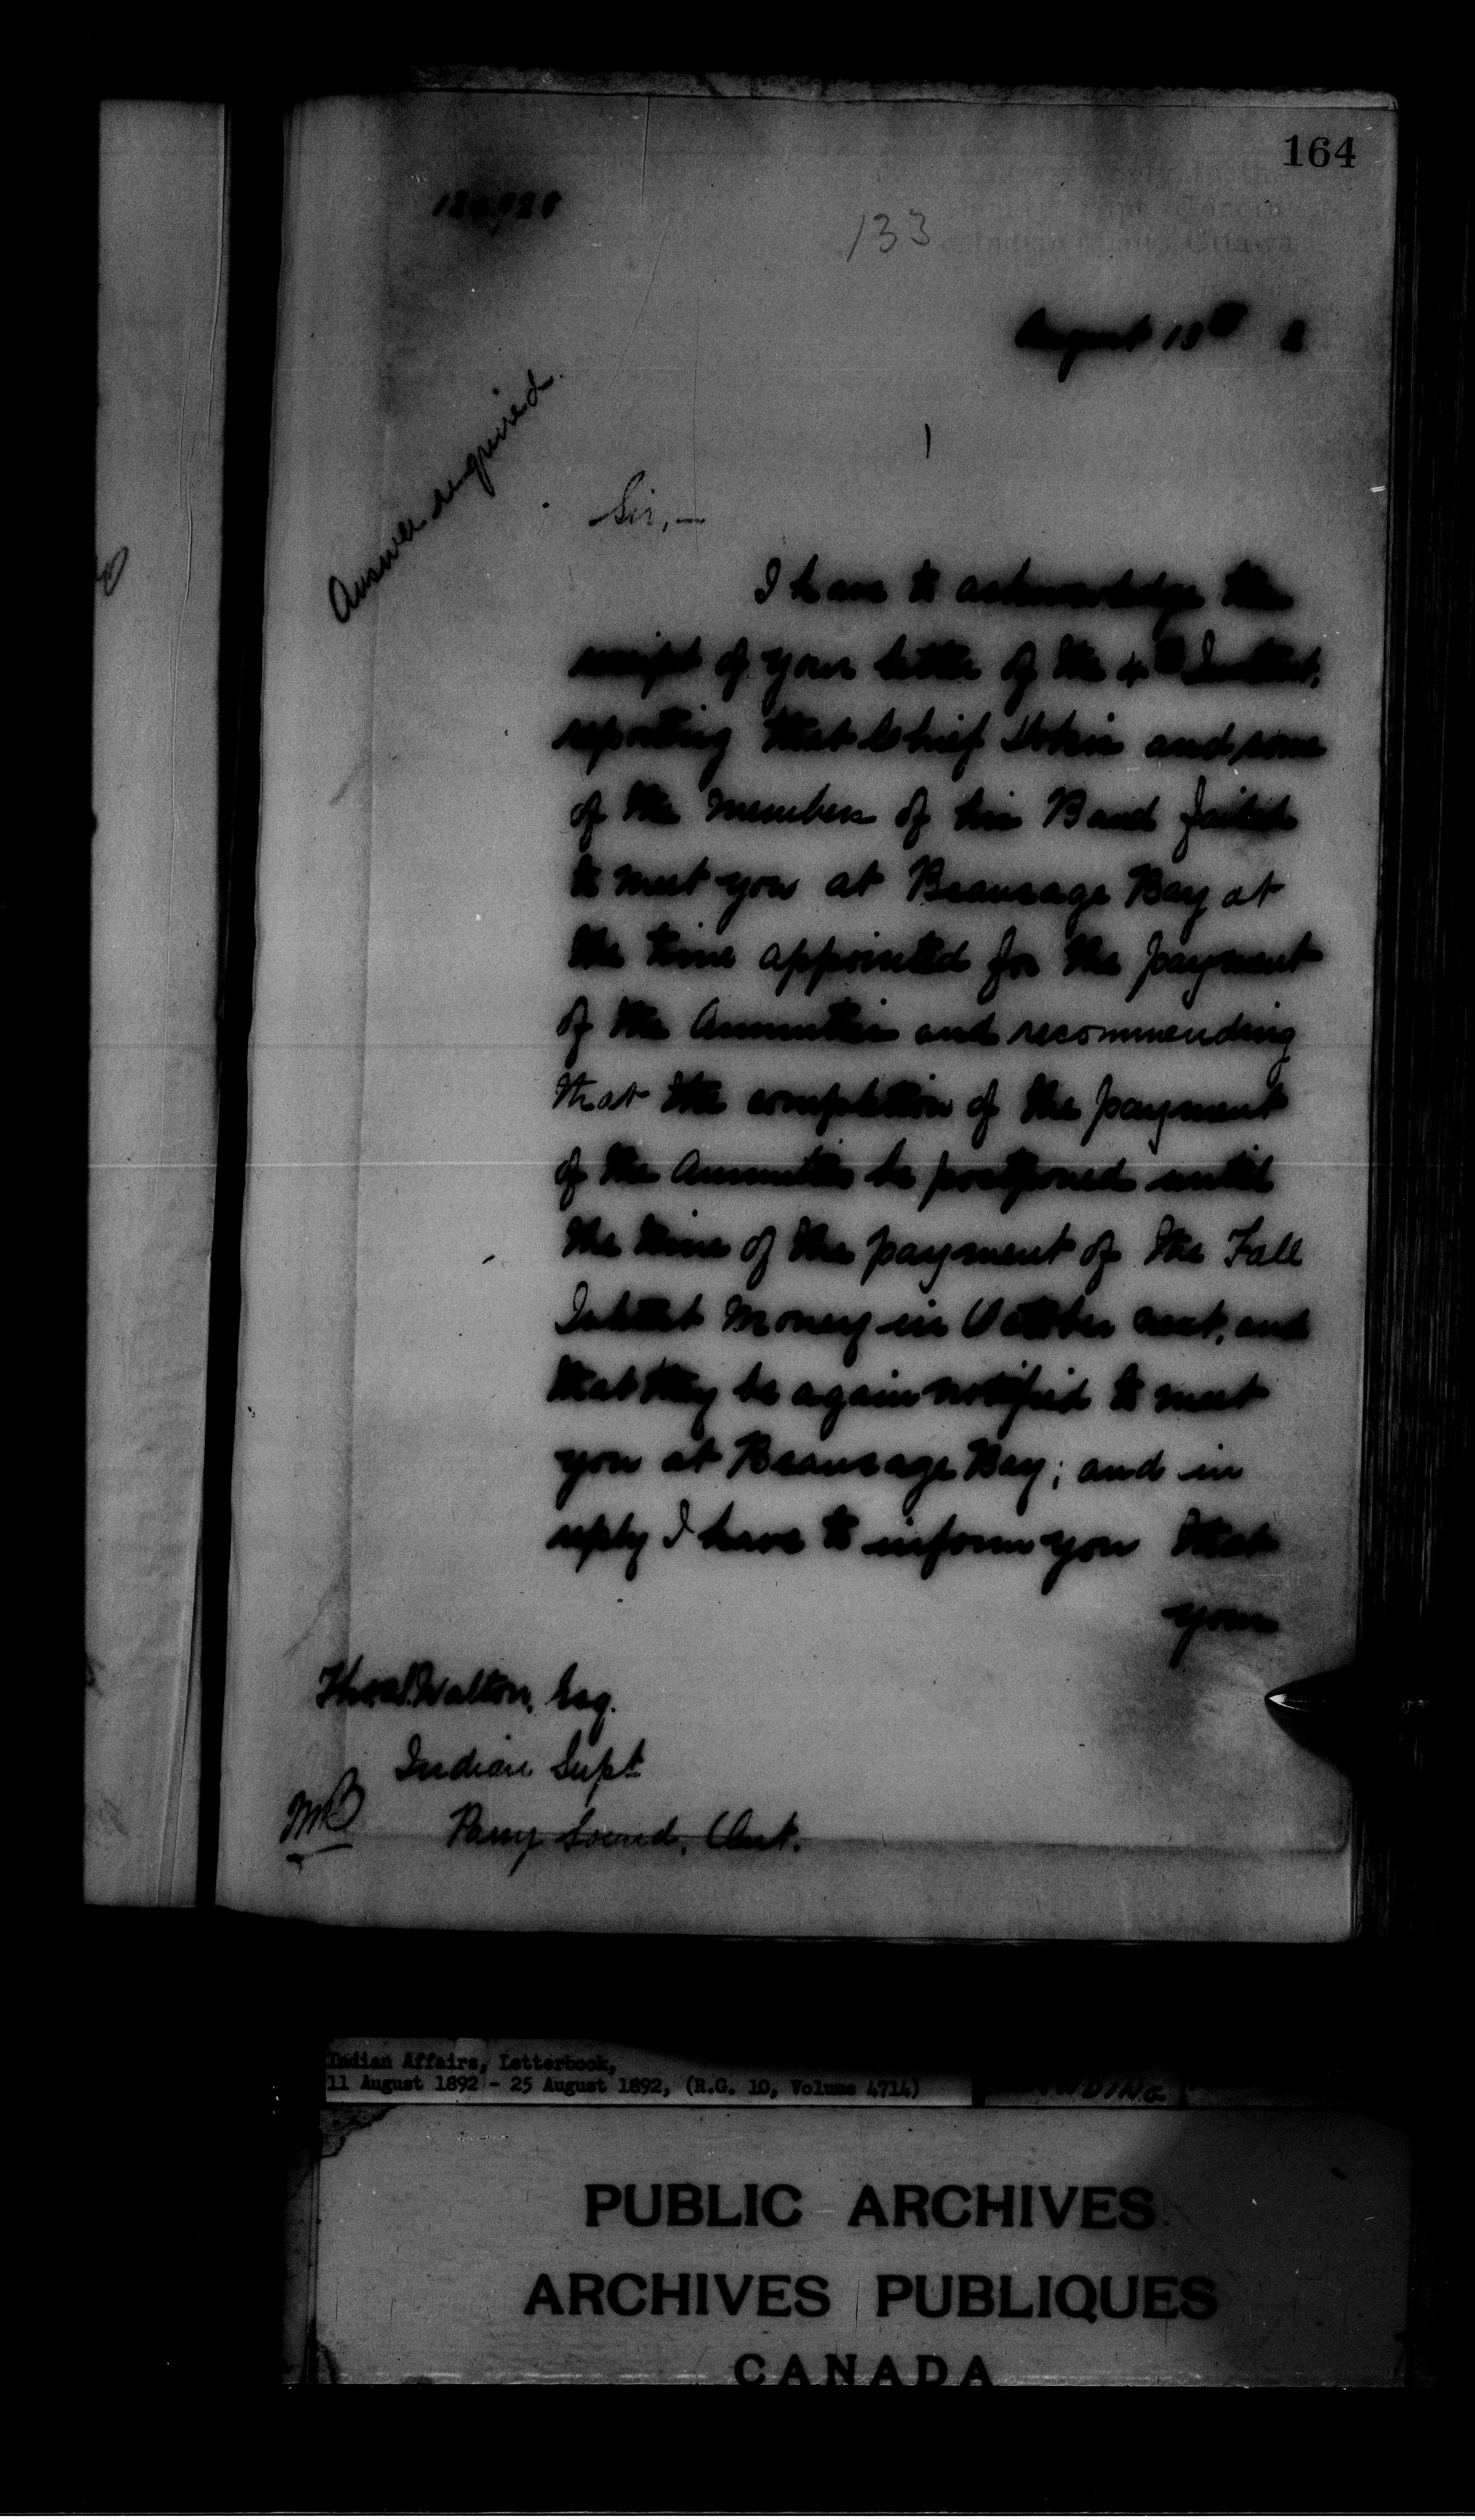 164
133
August 13th 2
Answer required.
Sir,—
I have to acknowledge the
receipt of your letter of the 4th Instant,
reporting that Chief and some
of the members of his Band failed
to meet you at Beausage Bay at
the time appointed for the payment
of the Annuities and recommending
that the completion of the payment
of the Annuities be postponed until
the time of the payment of the Fall
Interest money in October next, and
that they be again notified to meet
you at Beausage Bay; and in
reply I have to inform you that
your
Thos. S. Walton, Esq.
Indian Supt
MB
Parry Sound, Ont.
Indian Affairs, Letterbook,
11 August 1892 - 25 August 1892, (R.G. 10, Volume 4714)
PUBLIC ARCHIVES
ARCHIVES PUBLIQUES
CANADA